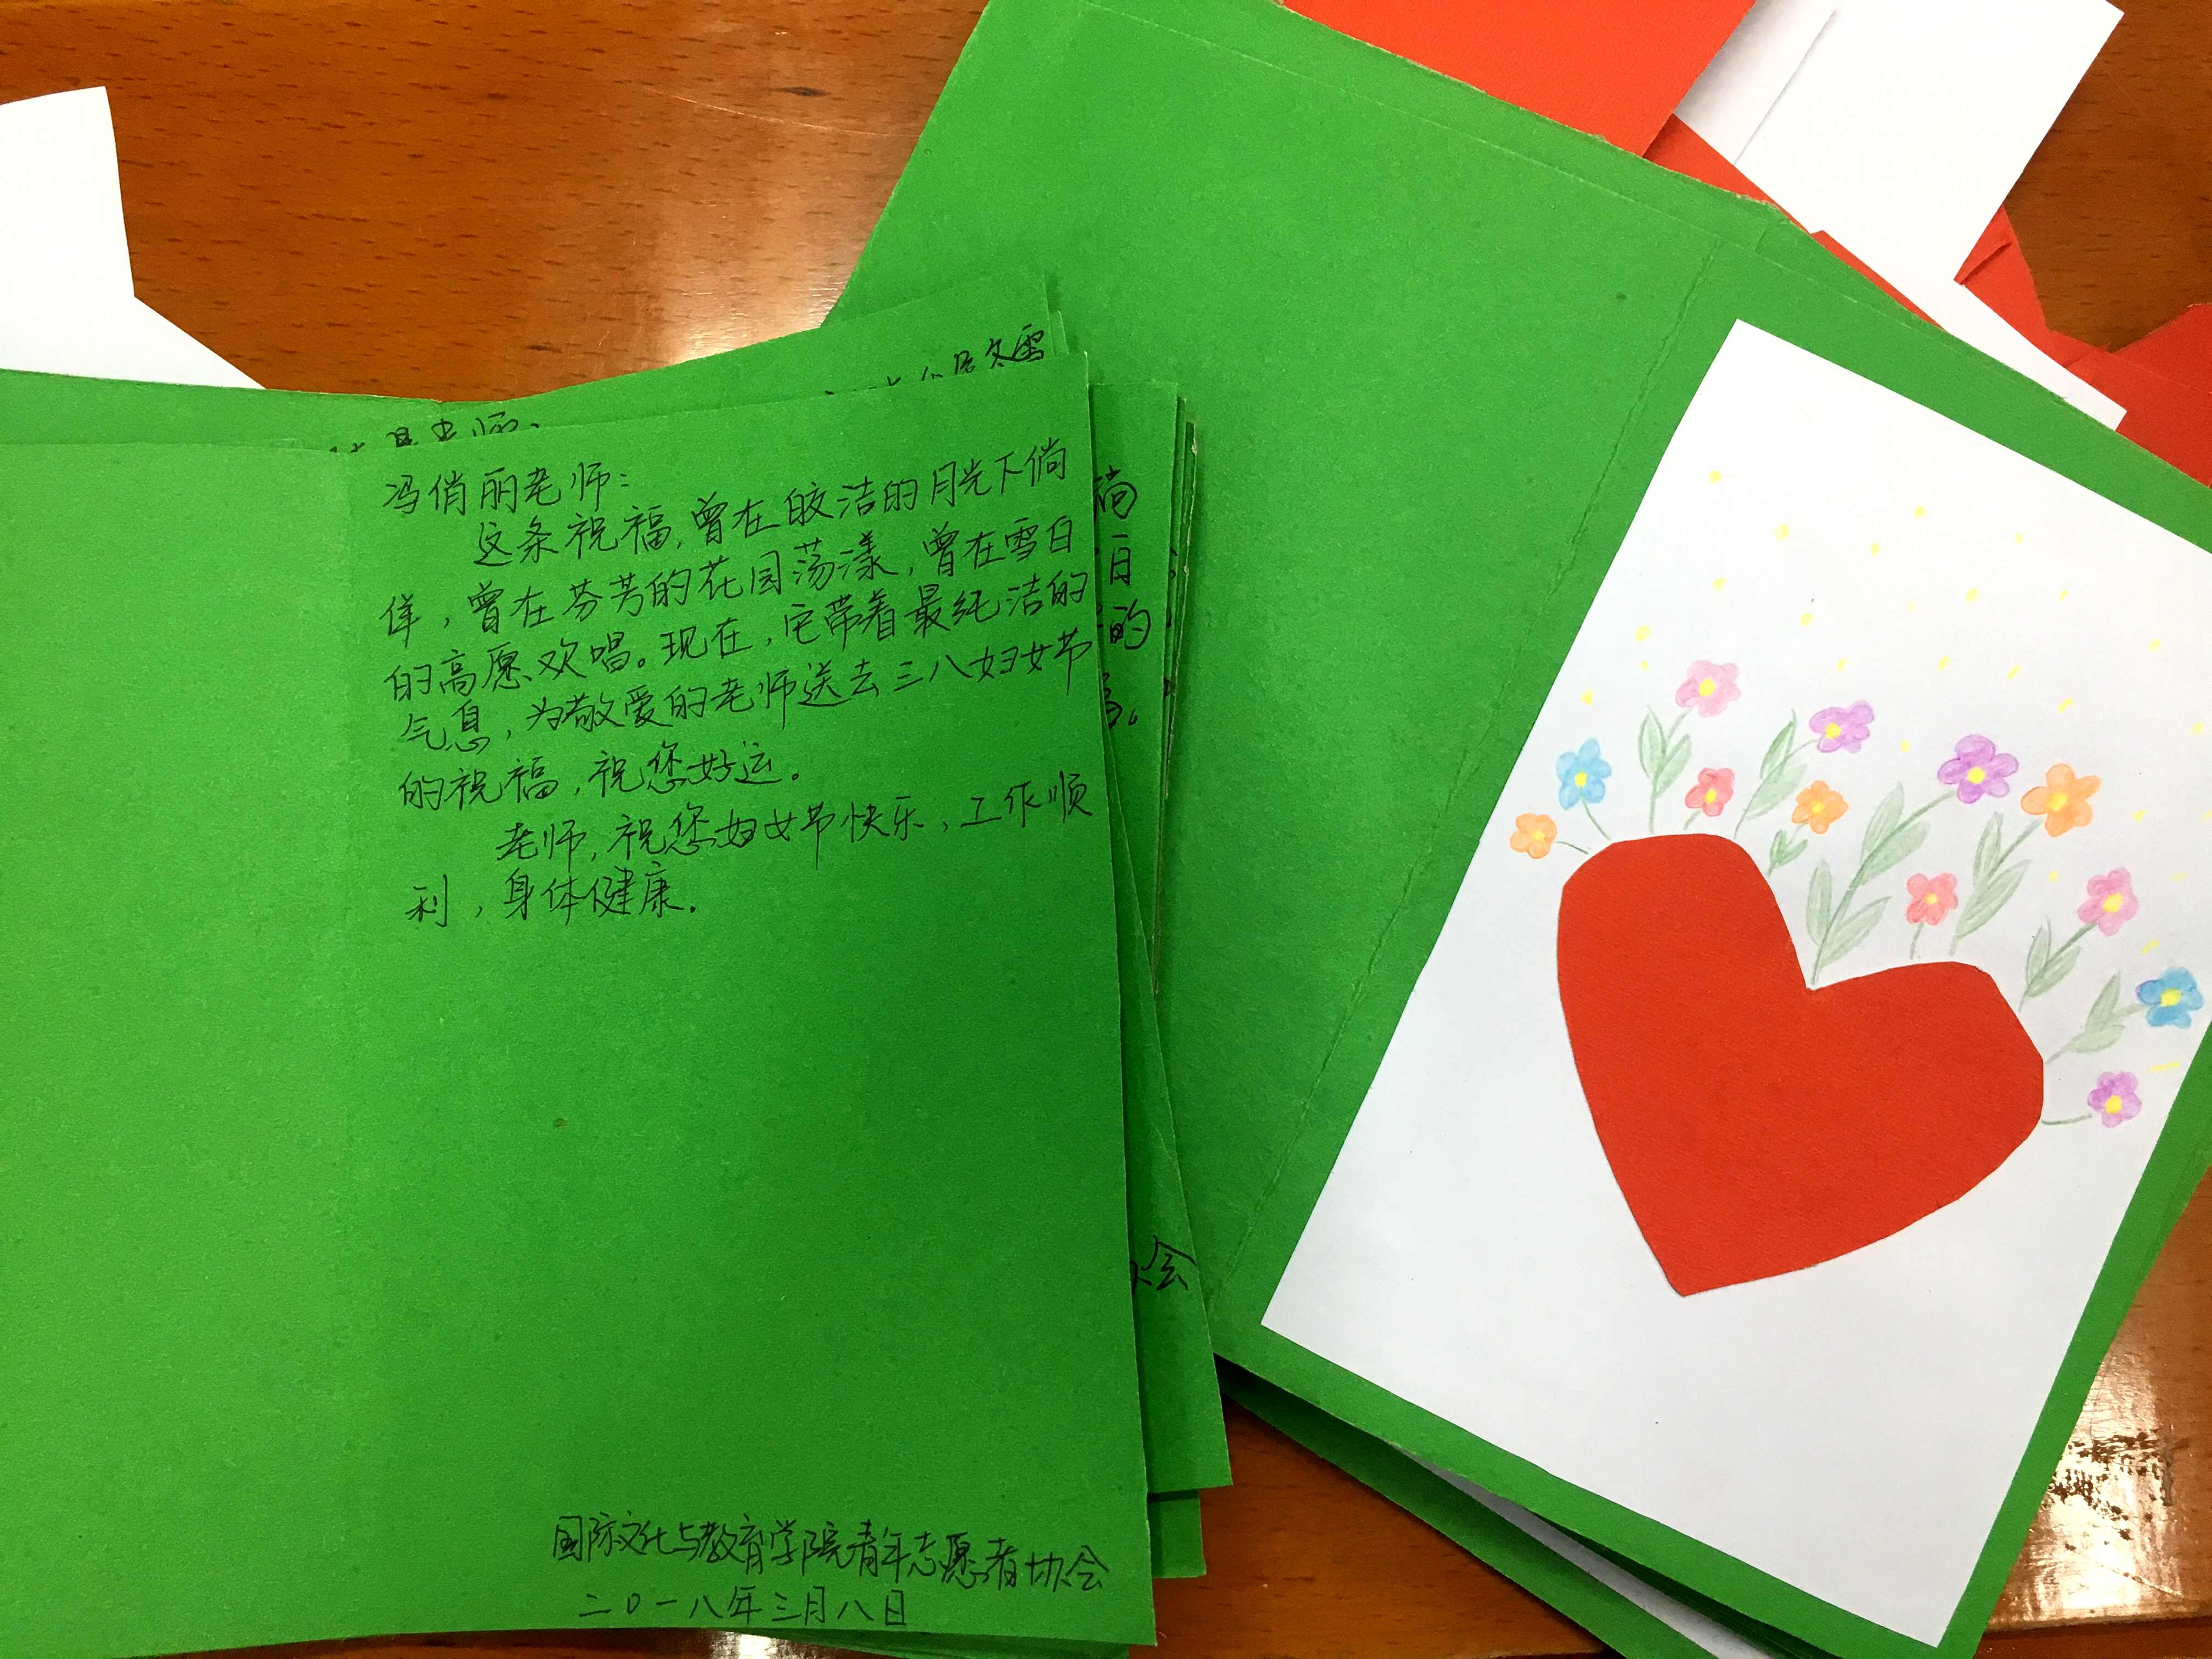 老师,
冯俏丽老师:
这条祝福,曾在皎洁的月光下徜
徉,曾在芬芳的花园荡漾,曾在雪白
的高愿欢唱。现在,它带着最纯洁的
气息,为敬爱的老师送去三八妇女节
的祝福,祝您好运。
老师,祝您妇女节快乐,工作顺
利,身体健康.
国际文化与教育学院青年志愿者协会
二〇一八年三月八日
徜
的
会